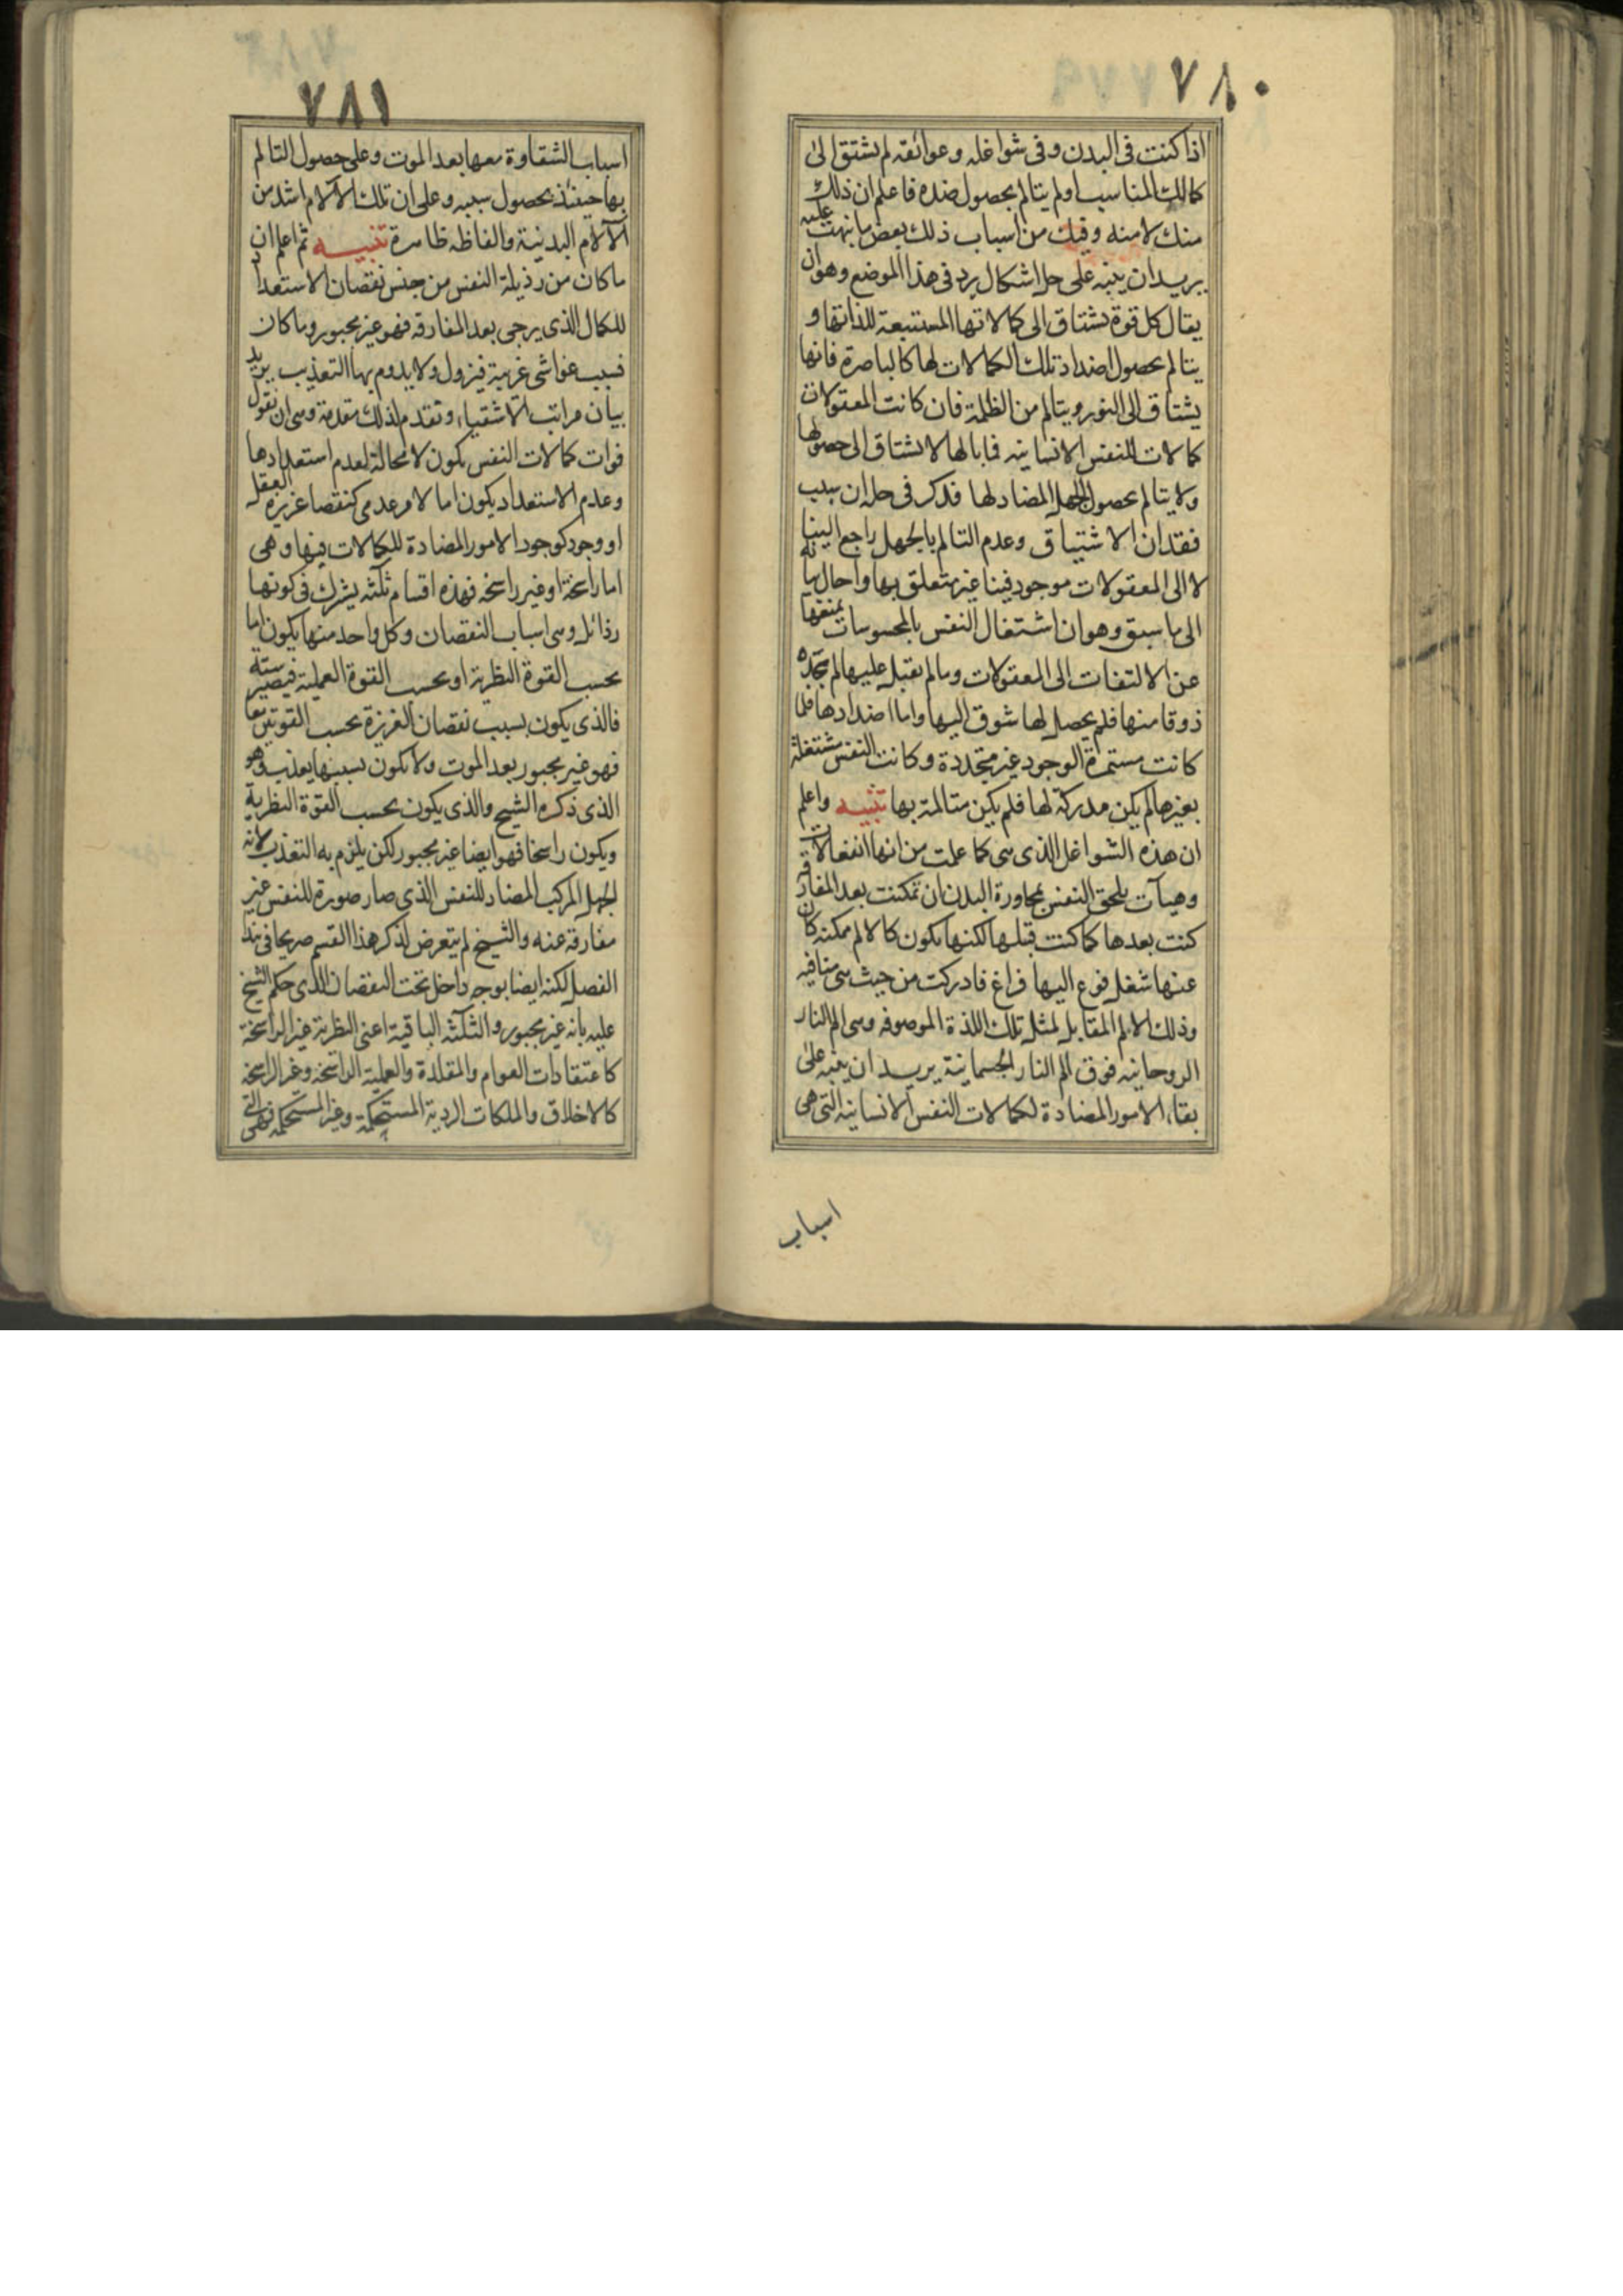 ٧٨٠
اذا كنت فى البدن وفى شواغله وعوائقه لم يشتق الى
كمالك المناسب اولم يتالم بحصول ضده فاعلم ان ذلك
منك لا منه وفيك من اسباب ذلك بعض ما نبهت عليه
يريد ان ينبه على حل اشكال يرد فى هذا الموضع وهو ان
يقال كل قوة يشتاق الى كمالاتها المستتبعة للذاتها و
يتالم بحصول اضداد تلك الكمالات لها كالباصرة فانها
يشتاق الى النور ويتالم من الظلمة فان كانت المعقولات
كمالات للنفس الانسانيه فما بالها لا يشتاق الى حصولها
ولا يتالم بحصول الجهل المضاد لها فذكر فى حله ان سبب
فقدان الاشتياق وعدم التالم بالجهل راجع الينا
لا الى المعقولات موجود فينا غير متعلق بها واحال بيانه
الى ما سبق وهو ان اشتغال النفس بالمحسوسات يمنعها
عن الالتفات الى المعقولات وما لم يقبل عليها لم تجد
ذوقا منها فلم يحصل لها شوق اليها واما اضدادها فلما
كانت مستمرة الوجود غير متجددة وكانت النفس مشتغلة
بغيرها لم يكن مدركة لها فلم يكن متالمة بها تنبيه واعلم
ان هذه الشواغل الذى هى كما علمت من انها انفعالات
وهيآت يلحق النفس بمجاورة البدن ان تمكنت بعد المفارقه
كنت بعدها كما كنت قبلها لكنها يكون كالالم ممكنه كان
عنها شغل فوقع اليها فراغ فادركت من حيث هى منافيه
وذلك الالم المقابل لمثل تلك اللذة الموصوفه وهى الم النار
الروحانيه فوق الم النار الجسمانية يريد ان ينبه على
بقاء الامور المضادة لكمالات النفس الانسانيه التى هى
اسباب
٧٨١
اسباب الشقاوة معها بعد الموت وعلى حصول التالم
بها حينئذ بحصول سببه وعلى ان تلك الآلام اشد من
الآلام البدنية والفاظه ظاهرة تنبيه ثم اعلم ان
ما كان من رذيلة النفس من جنس نقصان الاستعداد
للكمال الذى يرجى بعد المفارقه فهو غير مجبور وما كان
بسبب غواشى غريبة فيزول ولا يدوم بها التعذيب يريد
بيان مراتب الاشقياء وتقدم لذلك مقدمة وهى ان نقول
فوات كمالات النفس يكون لا محالة لعدم استعدادها
وعدم الاستعداد يكون اما لامر عدمى كنقصا غريزة العقل
او وجود كوجود الامور المضادة للكمالات فيها وهى
اما راسخة او غير راسخه فهذه اقسام ثلثه يشرك فى كونها
رذائل وهى اسباب النقصان وكل واحد منها يكون اما
بحسب القوة النظرية او بحسب القوة العملية فيصير ستة
فالذى يكون بسبب نقصان الغريزة بحسب القوتين معا
فهو غير مجبور بعد الموت ولا يكون بسببها يعذب وهو
الذى ذكره الشيخ والذى يكون بحسب القوة النظرية
ويكون راسخا فهو ايضا غير مجبور لكن يلزم به التعذب لانه
الجهل المركب المضاد للنفس الذى صار صورة للنفس غير
مفارقة عنه والشيخ لم يتعرض لذكر هذا القسم صريحا فى هذا
الفصل لكنه ايضا بوجه داخل تحت النقصان الذى حكم الشيخ
عليه بانه غير مجبور والثلثه الباقية اعنى النظرية غير الراسخة
كاعتقادات العوام والمقلدة والعملية الراسخه وغير الراسخه
كالاخلاق والملكات الردية المستحكمة وغير المستحكمه فهى التى